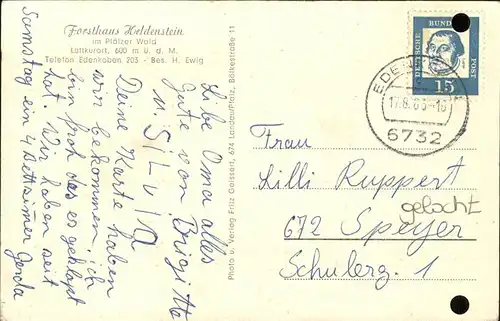 Forsthaus Heldenstein
im Pfälzer Wald
Luftkurort, 600 m ü. d. M.
Telefon Edenkoben 205 - Bes. H. Ewig
Liebe Oma alles
Gute von Brigitte
u. SiLViA
Deine Karte haben
wir bekommen, ich
bin froh das es geklapt
hat. Wir haben seit
Samstag ein 4 Bettzimer
Gerda
Photo u. Verlag Fritz Geissert, 674 Landau/Pfalz, Bölkestraße 11
DEUTSCHE
BUND
POST
15
EDE
17.8.63-16
6732
Frau
Lilli Ruppert
gelocht
672 Speyer
Schulerg. 1